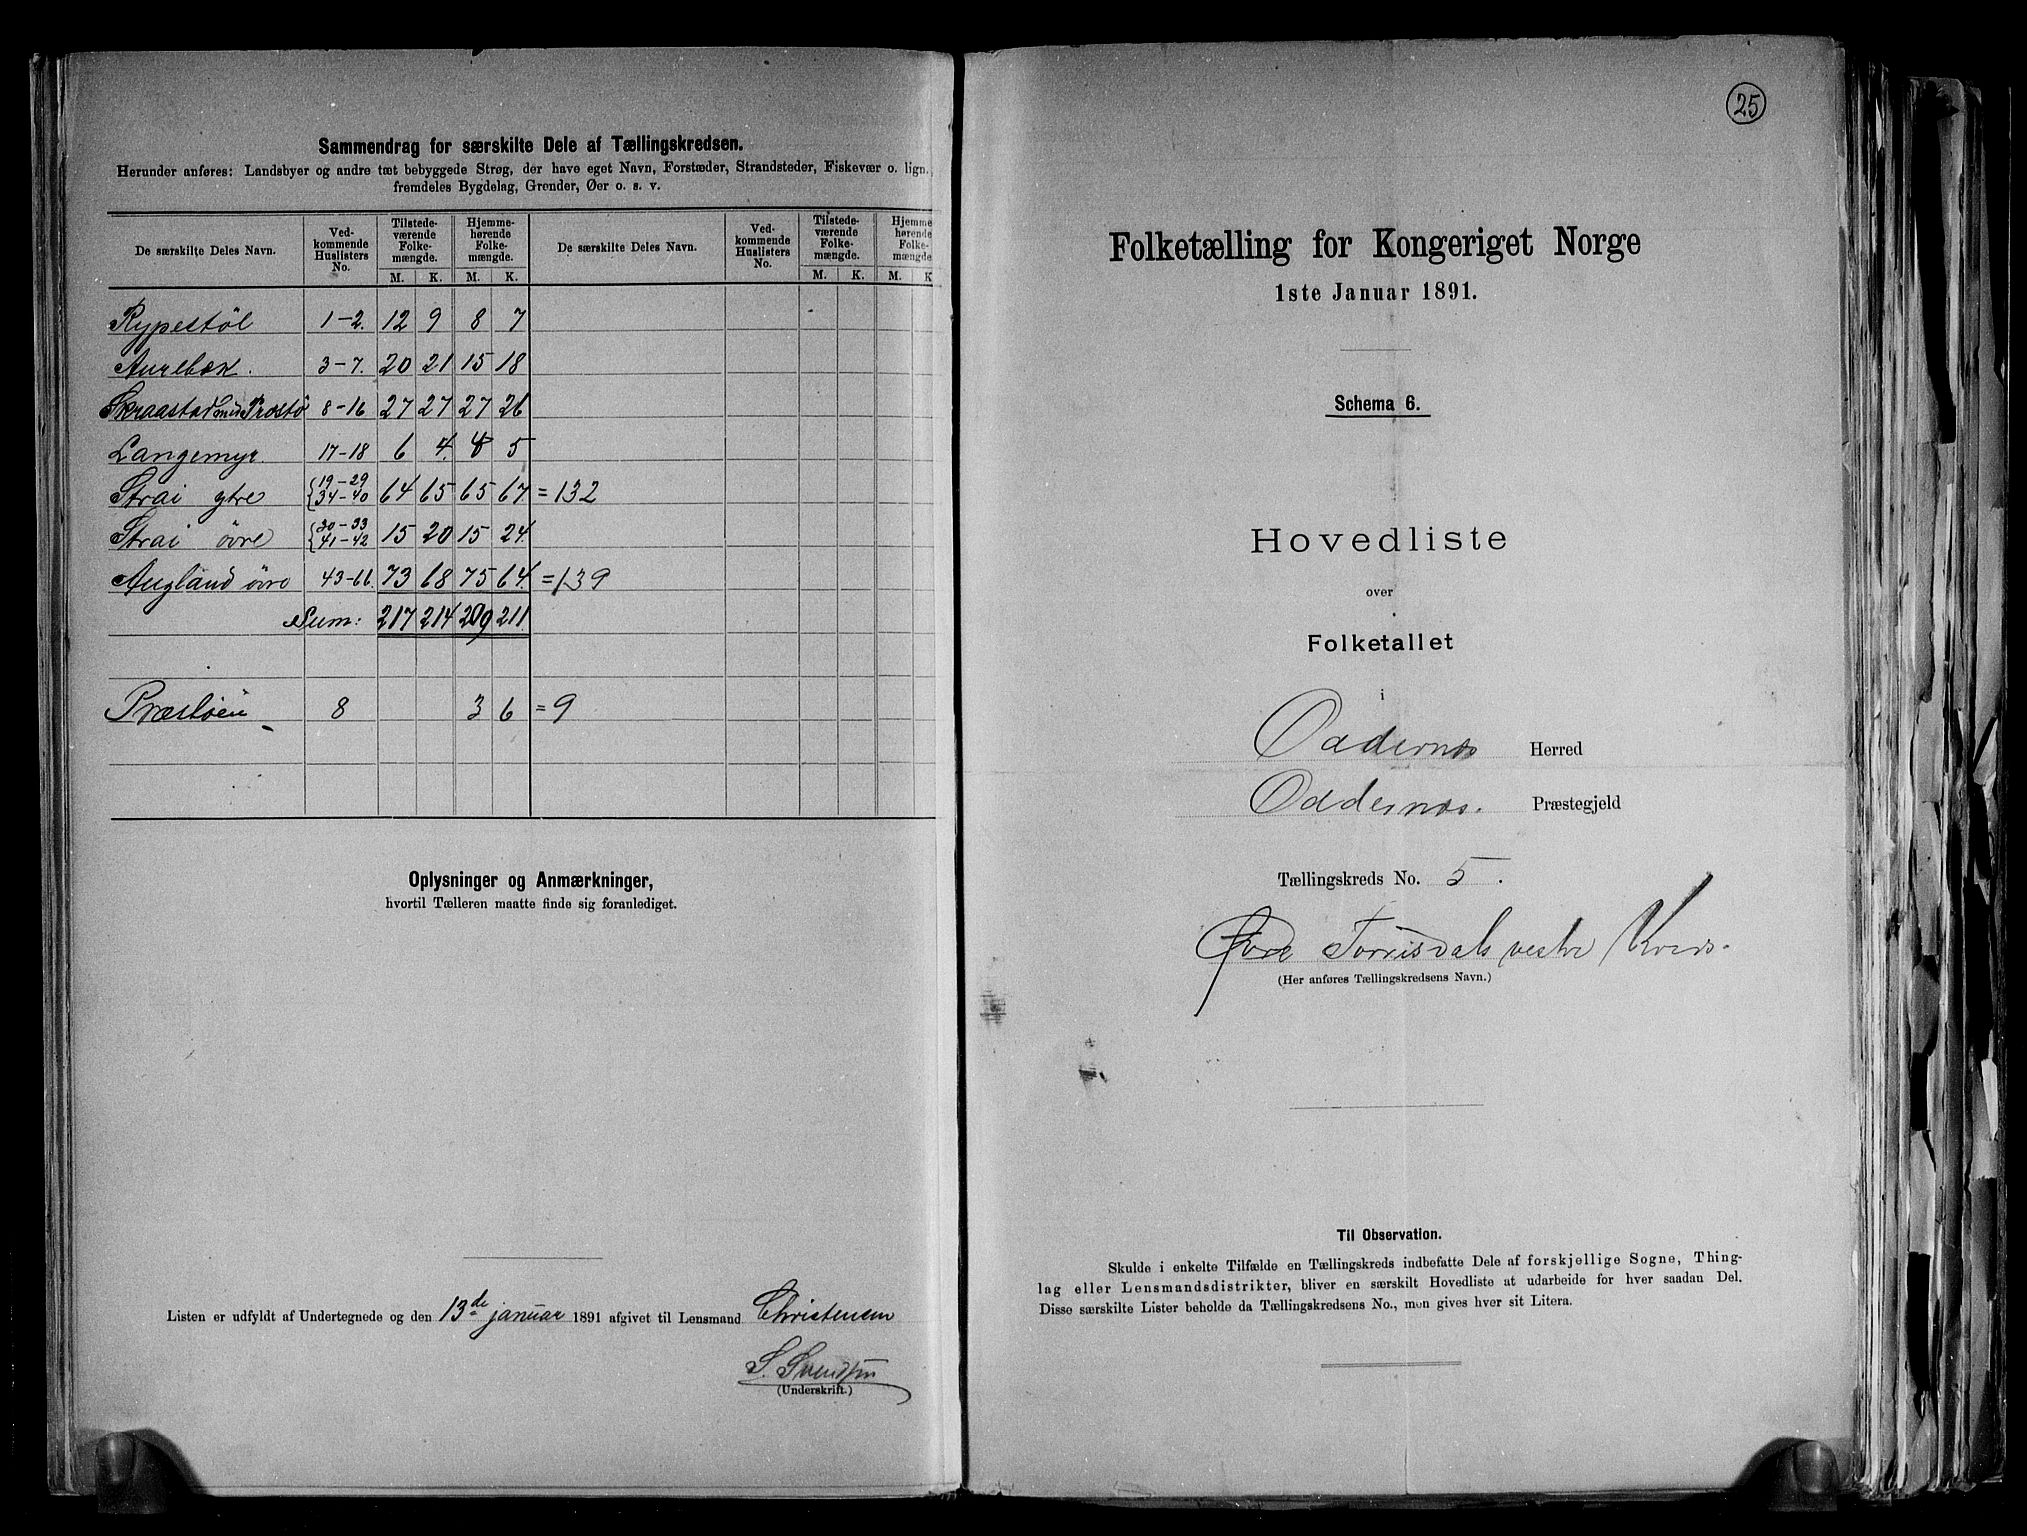 Sammendrag for særskilte Dele af Tællingskredsen.
Herunder anføres: Landsbyer og andre tæt bebyggede Strøg, der have eget Navn, Forstæder, Strandsteder, Fiskevær o. lign.,
fremdeles Bygdelag, Grender, Øer o. s. v.
De særskilte Deles Navn. Ved-kommende Huslisters No. Tilstede-værende Folke-mængde. Hjemme-hørende Folke-mængde. De særskilte Deles Navn. Ved-kommende Huslisters No. Tilstede-værende Folke-mængde. Hjemme-hørende Folke-mængde
M. K. M. K. M. K. M. K
Rypestøl 1-2. 12 9 8 7
Aurebæk. 3-7. 20 21 15 18
Skraastad med Præstø 8-16 27 27 27 26
Langemyr 17-18 6 4. 4 5
Strai ytre {19-29 34-40 64 65 65 67 = 132
Strai øvre {30-33 41-42 15 20 15 24
Augland øvre 43-66. 73 68 75 64. = 139
Sum: 217 214 209 211
Præstøen 8 3 6 = 9
Oplysninger og Anmærkninger,
hvortil Tælleren maatte finde sig foranlediget.
Listen er udfyldt af Undertegnede og den 13de januar 1891 afgivet til Lensmand Christensen
S. Svendsen
(Underskrift.)
25
Folketælling for Kongeriget Norge
1ste Januar 1891.
Schema 6.
Hovedliste
over
Folketallet
i
Oddernæs Herred
Oddernæs. Præstegjeld
Tællingskreds No. 5.
Øvre Torrisdals vestre Kreds.
(Her anføres Tællingskredsens Navn.)
Til Observation.
Skulde i enkelte Tilfælde en Tællingskreds indbefatte Dele af forskjellige Sogne, Thing-
lag eller Lensmandsdistrikter, bliver en særskilt Hovedliste at udarbeide for hver saadan Del.
Disse særskilte Lister beholde da Tællingskredsens No., men gives hver sit Litera.